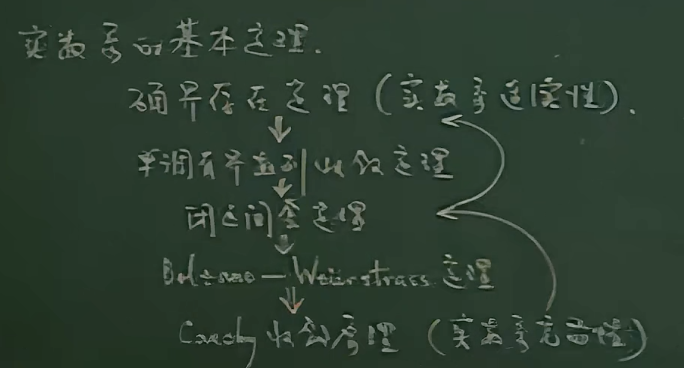 实数系的基本定理.
确界存在定理 (实数系连续性).
单调有界数列收敛定理
闭区间套定理
Bolzano — Weierstrass 定理
Cauchy 收敛原理 (实数系完备性)